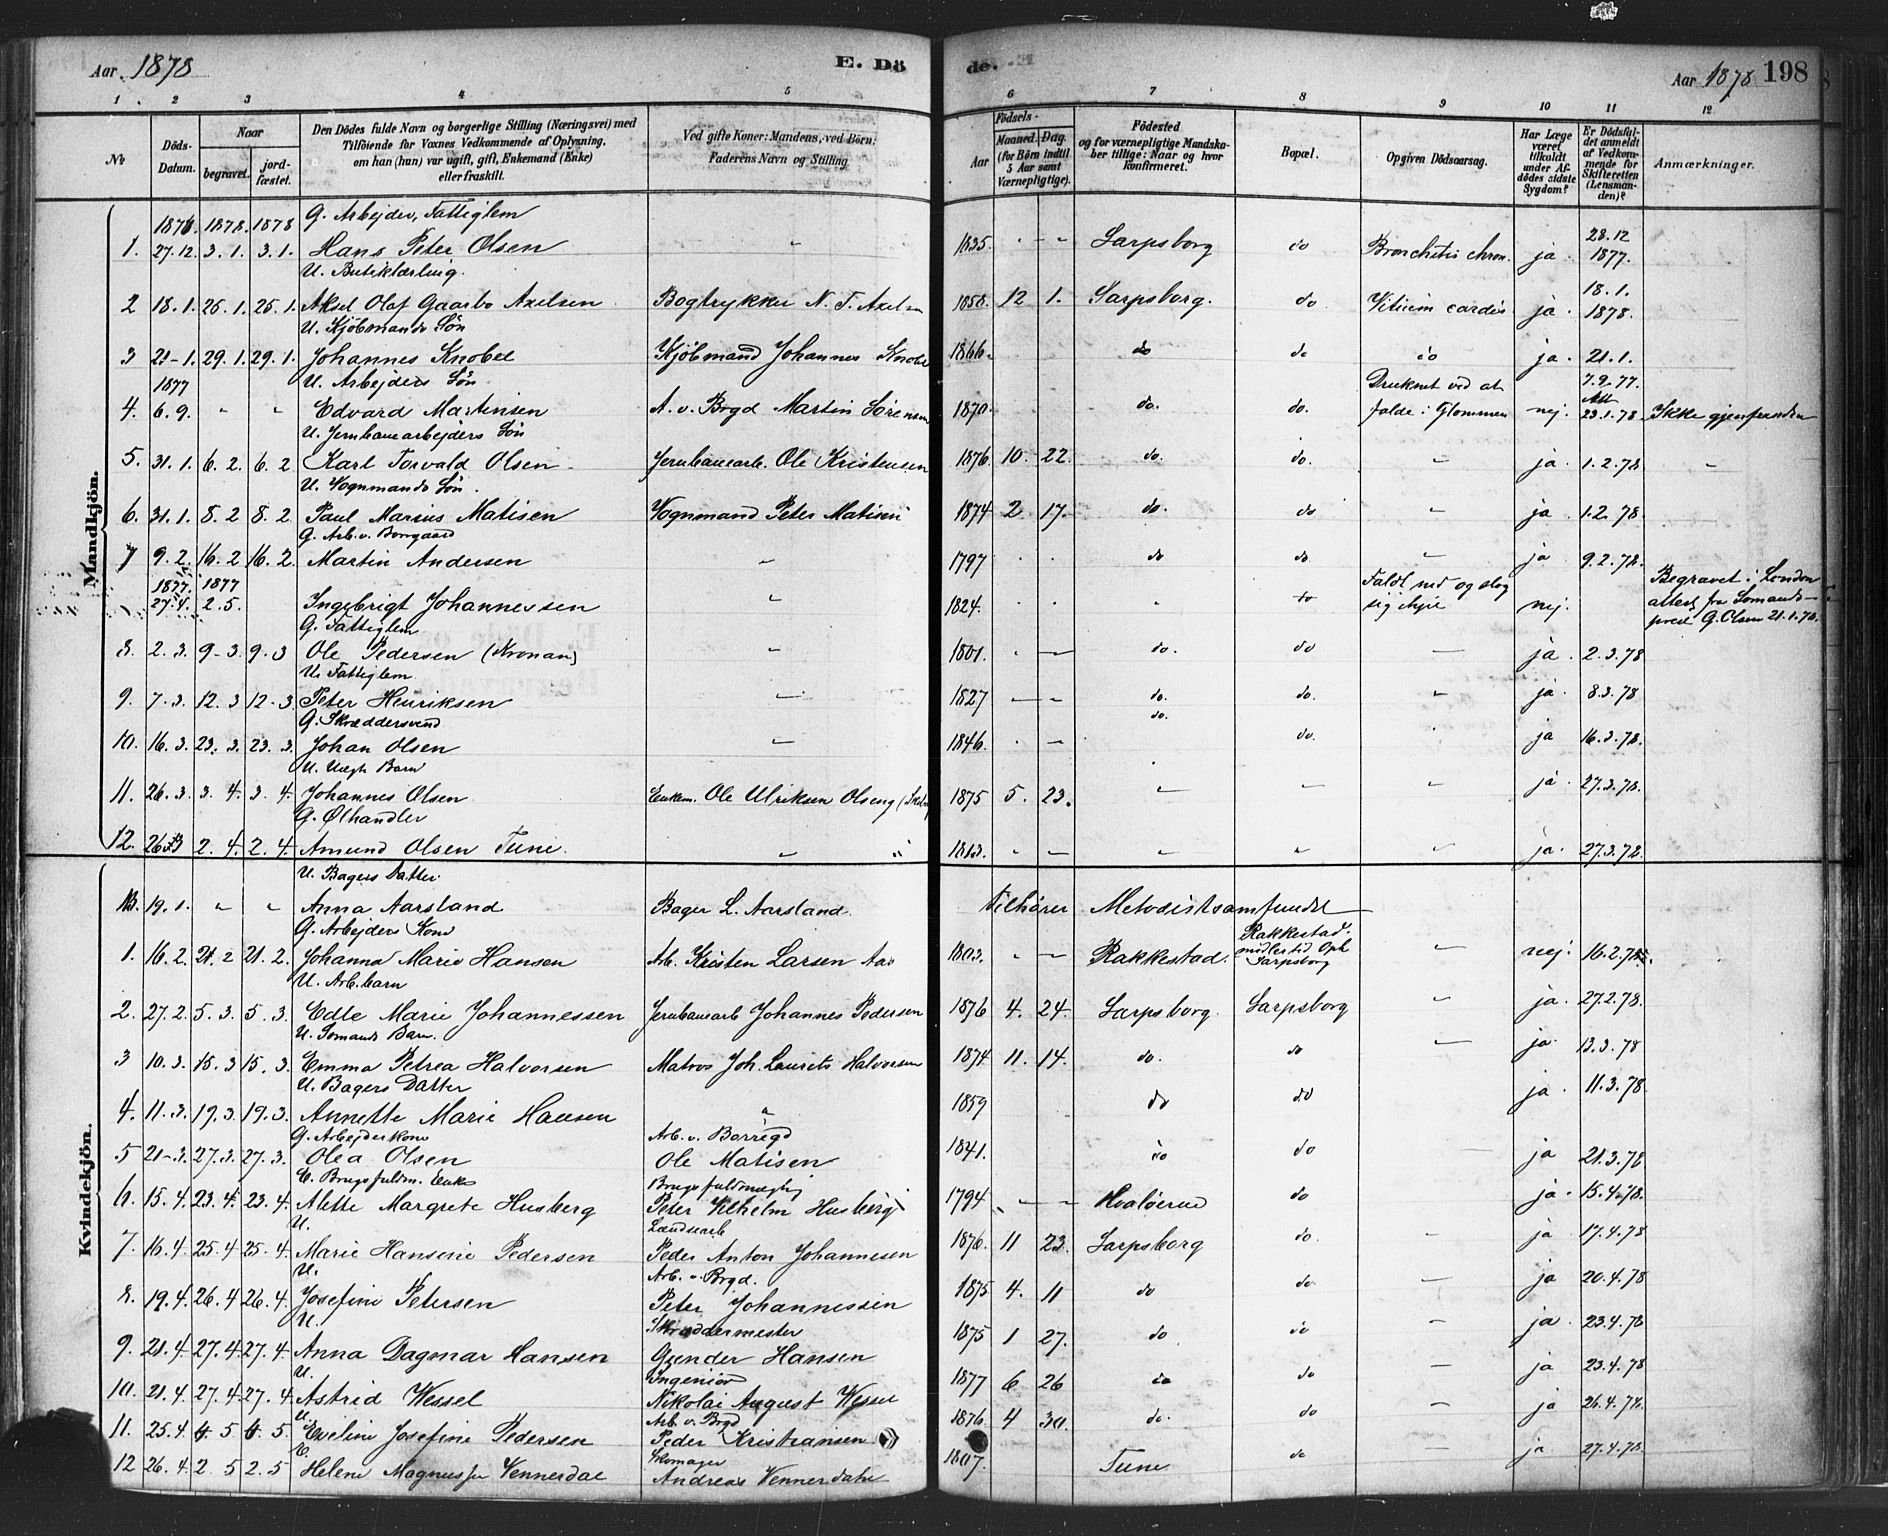 Aar 1878
E. Dö
de.
Aar 1878
198
1 2 3 4 5 6 7 8 9 10 11 12
No
Döds-Datum.
Naar
begravet.
jordfæstet.
Den Dödes fulde Navn og borgerlige Stilling (Næringsvei) med
Tilföiende for Voxnes Vedkommende af Oplysning,
om han (hun) var ugift, gift, Enkemand (Enke)
eller fraskilt.
Ved gifte Koner: Mandens, ved Börn:
Faderens Navn og Stilling.
Födsels-
Aar
Maaned. Dag.
(for Börn indtil 5 Aar samt Værnepligtige).
Födested
og for værnepligtige Mandskaber tillige: Naar og hvor konfirmeret.
Bopæl.
Opgiven Dödsaarsag.
Har Læge været tilkaldt under Afdödes sidste Sygdom?
Er Dödsfaldet anmeldt af Vedkommende for Skifteretten (Lensmanden)?
Anmærkninger.
Mandkjön.
1877. 1878. 1878 G. Arbejder, Fattiglem
1. 27.12. 3.1. 3.1. Hans Peter Olsen " 1835. " - " Sarpsborg do Bronchitis chron. ja. 28.12 1877.
U. Butiklærling.
2 18.1. 25.1. 25.1. Aksel Olaf Gaarbo Axelsen Bogtrykker N. T. Axelsen 1858. 12 1. Sarpsborg. do Vitium cordis ja. 18.1. 1878.
U. Kjöbmands Sön
3 21-1. 29.1. 29.1. Johannes Knobel Kjöbmand Johannes Knobel 1866. do do do ja. 21.1.
1877 U. Arbejders Sön
4. 6.9. " " Edvard Martinsen A. v. Brgd Martin Sörensen 1870. do. do. Druknet ved at falde i Glommen nej. 7.9.77. Att 23.1.78. Ikke gjenfunden
U. Jernbanearbejders Sön
5. 31.1. 6.2. 6.2 Karl Torvald Olsen Jernbanearb. Ole Kristensen 1876 10. 22. do. do. " ja. 1.2.78. "
U. Vognmands Sön.
6. 31.1. 8.2 8.2. Paul Marius Matisen Vognmand Peter Matisen 1874 2 17. do. do " ja. 1.2.78.
G. Arb. v. Borrgaard
7 9.2. 16.2 16.2. Martin Andersen " 1797 do do " ja 9.2.78.
1877. 1877
27.4. 2.5. Ingebrigt Johannessen " 1824. " do Faldt ned og slog sig ihjel nej. Begravet i London attest fra Sömandsprest G. Olsen 21.1.78.
G. Fattiglem
8. 2.3. 9-3. 9.3 Ole Pedersen (Kronan) " 1801. do. do ja. 2.3.78
U. Fattiglem
9. 7.3. 12.3 12.3. Peter Henriksen " 1827 do. do. " ja. 8.3.78
G. Skræddersvend
10. 16.3. 23.3. 23.3. Johan Olsen " 1846. do. do. ja 16.3.78.
U. Uægte Barn
11. 26.3. 3.4. 3.4. Johannes Olsen Enkem. Ole Ulriksen Olseng 1875 5. 23. " " " ja. 27.3.78.
G. Ølhandler
12. 26.3 2.4. 2.4. Amund Olsen Tune. " 1813. " " " ja. 27.3.78.
Kvindekjön.
U. Bagers Datter.
19.1. " " Anna Aarsland Bager L. Aarsland. tilhører Metodistsamfundet
G. Arbejders Kone
1. 16.2. 21.2 21.2. Johanna Marie Hansen Arb. Kristen Larsen Aas 1803. Rakkestad. Rakkestad. midlertid. Oph. Sarpsborg " nej. 16.2.78.
U. Arb. barn
2. 27.2. 5.3. 5.3. Edle Marie Johannessen Jernbanearb Johannes Pedersen 1876 4. 24. Sarpsborg. Sarpsborg " ja. 27.2.78.
U. Sömands Barn.
3 10.3. 15.3 15.3. Emma Petrea Halvorsen Matros Joh. Laurits Halvorsen 1874 11. 14. do. do ja. 13.3.78
U. Bagers Datter
4. 11.3. 19.3. 19.3. Annette Marie Hansen " 1859 do do ja. 11.3.78.
G. Arbejderkone Arb. v. Borregd
5 21-3. 27.3. 27.3. Olea Olsen Ole Matisen 1841. do do ja 21.3.78
E. Brugsfuldm. Enke Brugsfuldmægtig
6. 15.4. 23.4. 23.4. Alette Margrete Husberg Peter Vilhelm Husberg 1794 Hvalöerne do ja. 15.4.78.
U. Landsarb
7. 16.4. 25.4 25.4. Marie Hansine Pedersen Peder Anton Johannesen 1876. 11 23. Sarpsborg do. ja. 17.4.78
U. Arb. v. Brgd.
8. 19.4. 26.4 26.4. Josefine Petersen Peter Johannessen 1875 4. 11 do do ja 20.4.78
U. Skræddermester
9. 21.4. 27.4. 27.4. Anna Dagmar Hansen Gunder Hansen 1875 1 27. do do ja. 23.4.78
U. Ingeniör
10. 21.4 27.4. 27.4. Astrid Wessel Nikolai August Wessel 1877 6 26 do do ja 23.4.78
U. Arb. v. Brgd
11. 25.4. 6.5 6.5. Eveline Josefine Pedersen Peder Kristiansen 1876. 4 30. do. do ja 26.4.78.
E. Skomager
12 26.4. 2.5 2.5 Helene Vennerdal Andreas Vennerdahl 1807. Tune do ja 27.4.78.